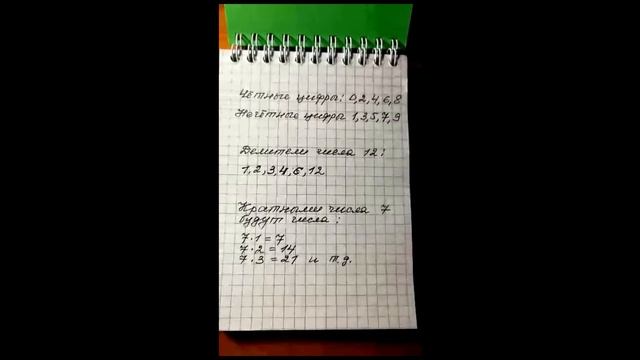 Чётные цифры: 0,2,4,6,8
Нечётные цифры 1,3,5,7,9
Делители числа 12:
1,2,3,4,6,12
Кратными числа 7
будут числа:
7·1=7
7·2=14
7·3=21 и т.д.